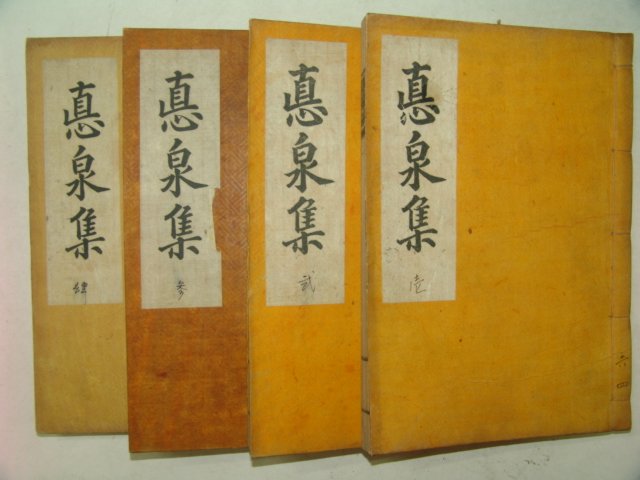 悳泉集
壹
悳泉集
貳
悳泉集
參
悳泉集